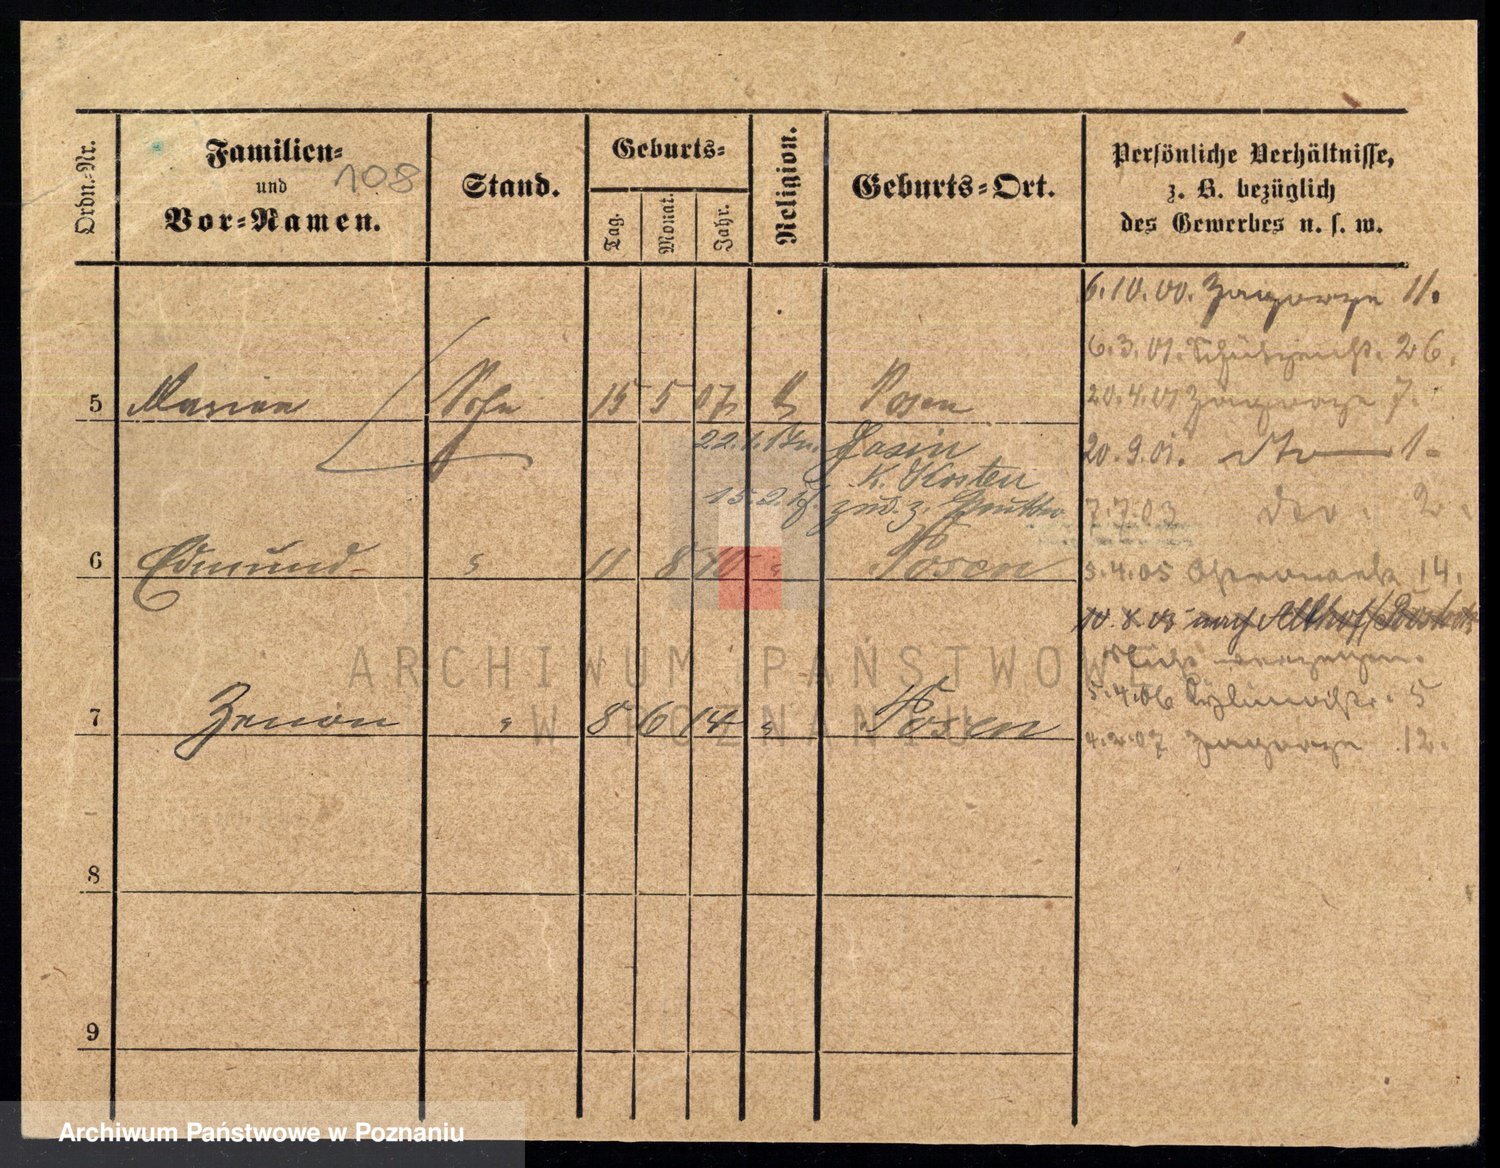 Ordn.-Nr.
Familien-
und
Vor-Namen.
108
Stand.
Geburts-
Tag.
Monat.
Jahr.
Religion.
Geburts-Ort.
Persönliche Verhältnisse,
z. B. bezüglich
des Gewerbes u. s. w.
6.10.00. Zagorze 11.
6.3.01. Schützenstr. 26.
20.4.01 Zagorze 7.
20.9.01. dto 1.
7.7.03 dto. 2.
.4.05 14.
10.8.05 nach Althof
verzogen.
5.4.06 5
4.2.07 Zagorze 12.
5 Marian Sohn 15 5 07 k Posen
22.1. Jasin
K. Kosten
15.2. zur. z.
6 Edmund " 11 8 10 " Posen
7 Zenon " 8 6 14 " Posen
8
9
ARCHIWUM PAŃSTWOWE
W POZNANIU
Archiwum Państwowe w Poznaniu